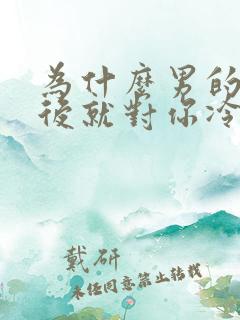 為什麼男的
後就對你冷
戴研
未經同意禁止轉載